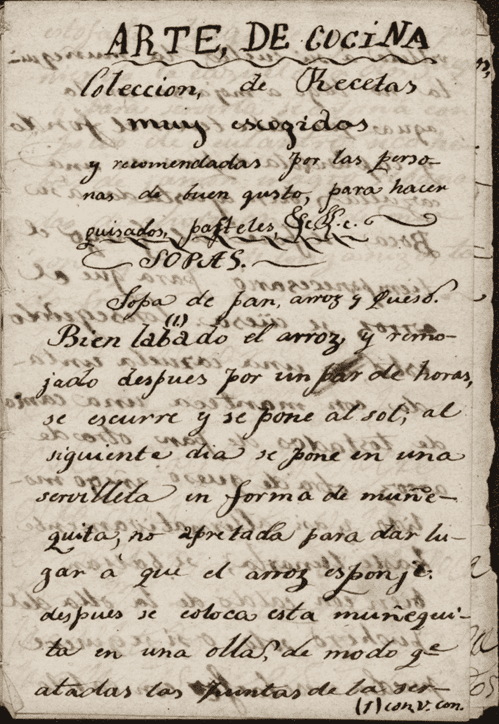 ARTE, DE COCINA
Coleccion, de Recetas
muy escogidas
y recomendadas por las perso-
nas de buen gusto, para hacer
guisados, pasteles, &c. &c.
SOPAS.
Sopa de pan, arroz y Queso.
Bien labado (1) el arroz, y remo-
jado despues por un par de horas,
se escurre y se pone al sol; al
siguiente dia se pone en una
servilleta en forma de muñe-
quita, no apretada para dar lu-
gar á que el arroz esponje.
despues se coloca esta muñequi-
ta en una olla, de modo qe
atadas las puntas de la ser-
(1) con v. con.